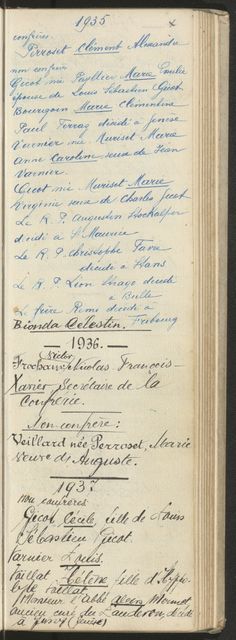 1935
confrères.
Perroset Clément Alexandre
non confrères
Gicot née Payllier Marie Emilie
épouse de Louis Sébastien Gicot
Bourgoin Marie Clémentine
Paul Ferray décédé à Genève
Varnier née Muriset Marie
Anne Caroline veuve de Jean
Varnier.
Gicot née Muriset Marie
Virginie veuve de Charles Gicot
Le R. P. Augustin Stockalper
décédé à St Maurice
Le R. P. Christophe Favre
décédé à Stans
Le R. P. Léon décédé
à Bulle
Le frère Rémi décédé à
Fribourg
Bionda Célestin.
1936.
Victor
Frochaux, Nicolas François-
Xavier, Secrétaire de la
Confrérie.
Non confrère:
Veillard née Perroset, Marie
veuve de Auguste.
1937
non confrères
Gicot Cécile, fille de Louis
Sébastien Gicot.
Varnier Louis.
Vaillat Hélène fille d'Hyppo-
lyte Vaillat
Monsieur l'abbé Mermet
ancien curé du Landeron, décédé
à Jussy (Genève)